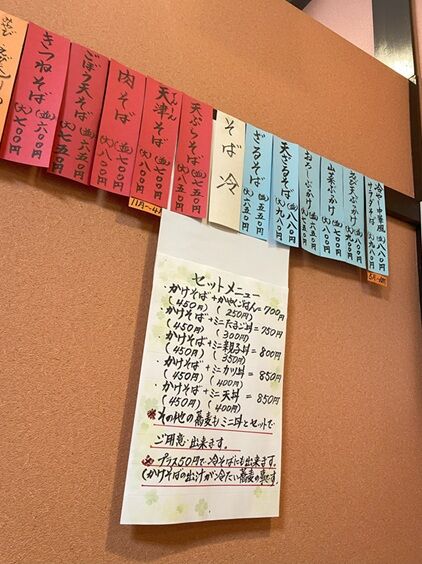 きつねそば
(並)六〇〇円
(大)七〇〇円
ごぼう天そば
(並)六五〇円
(大)七五〇円
肉そば
(並)七〇〇円
(大)八〇〇円
天津そば
(並)七〇〇円
(大)八〇〇円
11月〜4月
天ぷらそば
(並)六五〇円
(大)七五〇円
そば 冷
ざるそば
(並)五五〇円
(大)六五〇円
天ざるそば
(並)八八〇円
(大)九八〇円
おろしぶっかけ
(並)六五〇円
(大)七五〇円
山菜ぶっかけ
(並)七〇〇円
(大)八〇〇円
えび天ぶっかけ
(並)八〇〇円
(大)九〇〇円
冷やし中華風
サラダそば
(並)八八〇円
(大)九八〇円
セットメニュー
・かけそば+かやくごはん=700円
(450円) (250円)
・かけそば+ミニたまご丼=750円
(450円) (300円)
・かけそば+ミニ親子丼=800円
(450円) (350円)
・かけそば+ミニカツ丼=850円
(450円) (400円)
・かけそば+ミニ天丼=850円
(450円) (400円)
※その他の蕎麦もミニ丼とセットで
ご用意出来ます。
※プラス50円で冷そばにも出来ます。
(かけそばの出汁が冷たい蕎麦の事です。